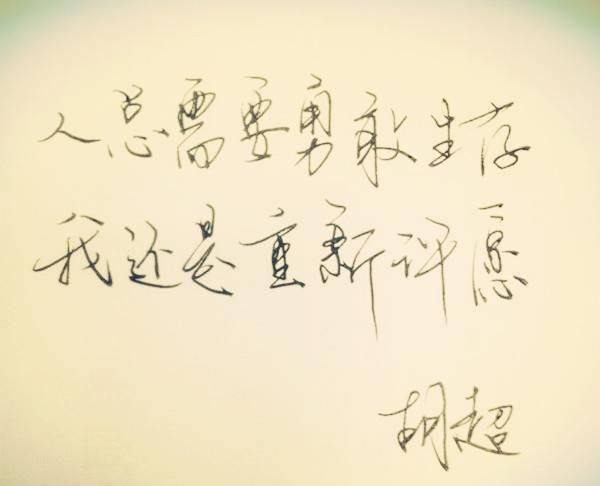 人总需要勇敢生存
我还是重新许愿
胡超